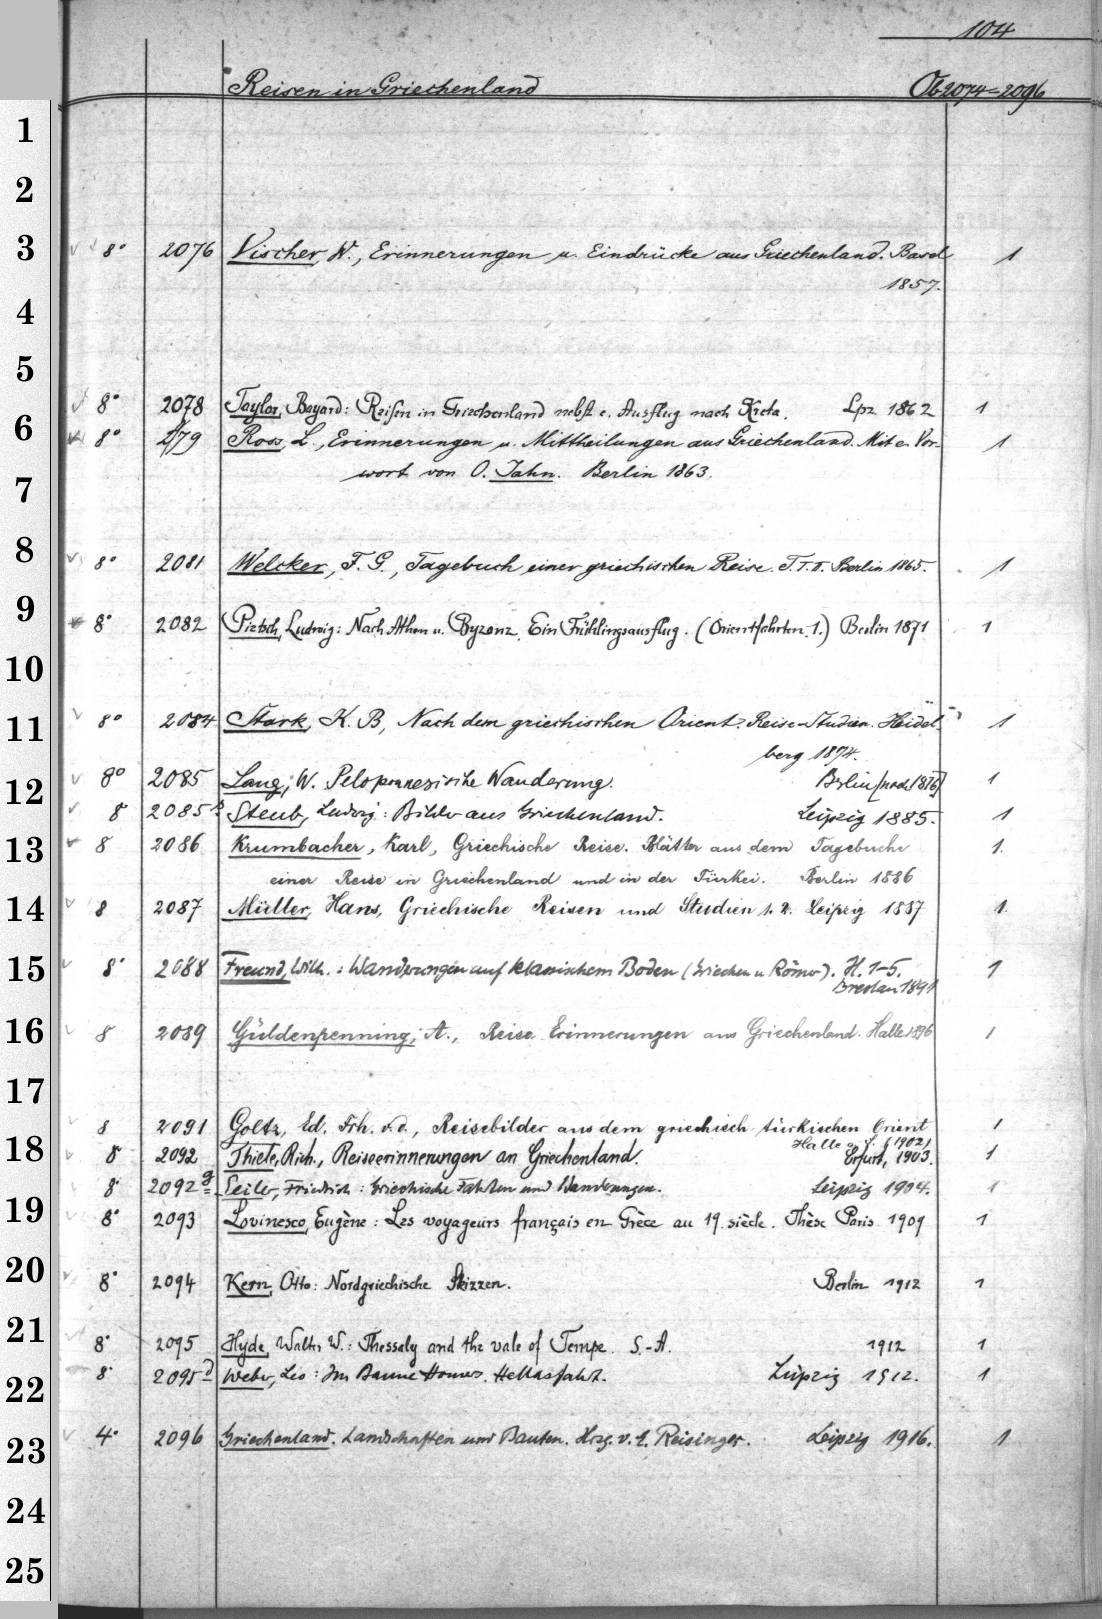 104
Reisen in Griechenland Ob 2074-2096
1
2
3 8° 2076 Vischer, W., Erinnerungen u. Eindrücke aus Griechenland. Basel 1
1857.
4
5
8° 2078 Taylor, Bayard: Reisen in Griechenland nebst e. Ausflug nach Kreta. Lpz 1862 1
6 8° 2079 Ross, L., Erinnerungen u. Mittheilungen aus Griechenland. Mit e. Vor- 1
wort von O. Jahn. Berlin 1863.
7
8 8° 2081 Welcker, F. G., Tagebuch einer griechischen Reise. T. I. II. Berlin 1865. 1
9 8° 2082 Pietsch, Ludwig: Nach Athen u. Byzanz. Ein Frühlingsausflug. (Orientfahrten. 1.) Berlin 1871 1
10
11 8° 2084 Stark, K. B., Nach dem griechischen Orient. Reise-Studien. Heidel- 1
berg 1874.
12 8° 2085 Lang, W. Peloponnesische Wanderung. Berlin [nach 1876] 1
8 2085 Steub, Ludwig: Bilder aus Griechenland. Leipzig 1885. 1
13 8 2086 Krumbacher, Karl, Griechische Reise. Blätter aus dem Tagebuche 1.
einer Reise in Griechenland und in der Türkei. Berlin 1886
14 8 2087 Müller, Hans, Griechische Reisen und Studien 1. 2. Leipzig 1887 1.
15 8° 2088 Freund, Wilh.: Wanderungen auf klassischem Boden (Griechen u Römer). H. 1-5. 1
Breslau 1891
16 8 2089 Güldenpenning, A., Reise Erinnerungen aus Griechenland. Halle 1896 1
17
8 2091 Goltz, Ed. Frh. v. d., Reisebilder aus dem griechisch türkischen Orient 1
Halle o. J. (1902)
18 8° 2092 Thiele, Rich., Reiseerinnerungen an Griechenland. Erfurt, 1903. 1
8° 2092 g Seiler, Friedrich: Griechische Fahrten und Wanderungen. Leipzig 1904. 1
19 8° 2093 Lovinesco, Eugène: Les voyageurs français en Grèce au 19. siècle. Thèse Paris 1909 1
20 8° 2094 Kern, Otto: Nordgriechische Skizzen. Berlin 1912 1
21 8° 2095 Hyde, Walter W.: Thessaly and the vale of Tempe. S.-A. 1912 1
22 8° 2095 Weber, Leo: Im Banne Homers. Hellasfahrt. Leipzig 1912. 1
23 4° 2096 Griechenland. Landschaften und Bauten. Hrsg. v. E. Reisinger. Leipzig 1916. 1
24
25